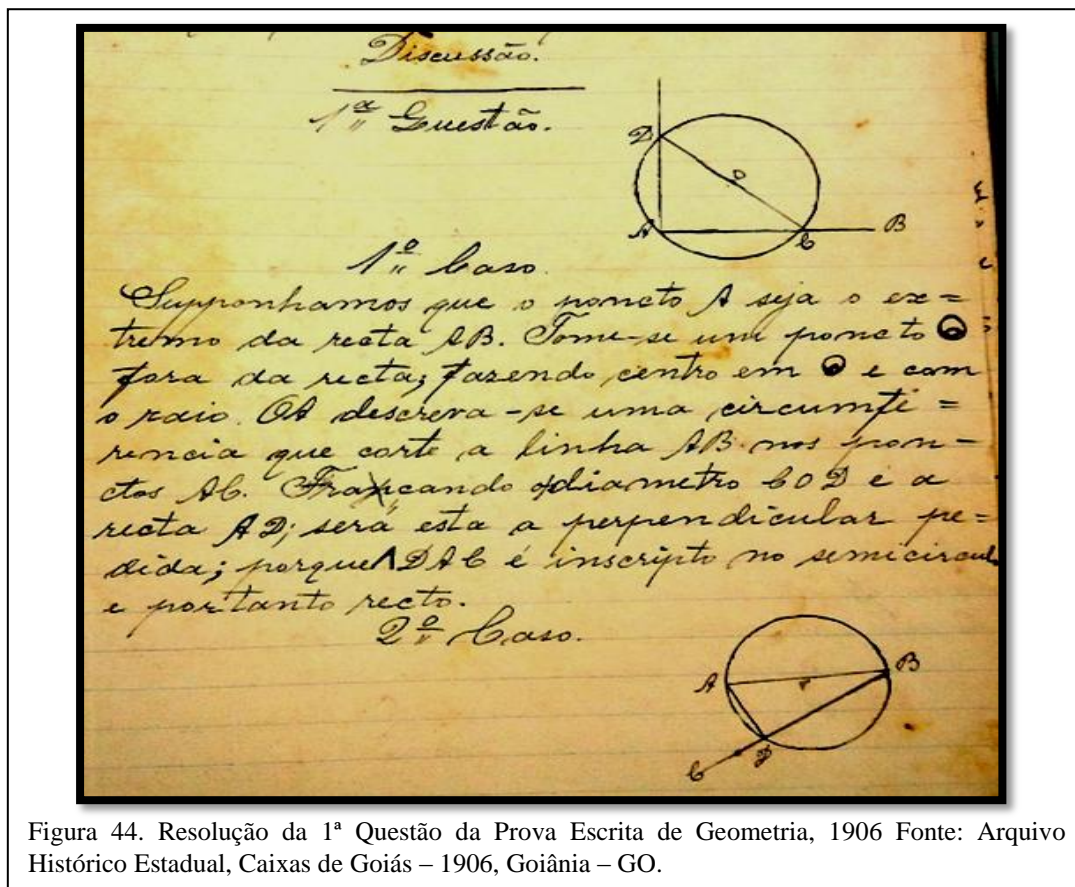 Discussão.
1ª Questão.
D
O
A
C
B
1º Caso
Supponhamos que o poncto A seja o ex=
tremo da recta AB. Tome-se um poncto O
fora da recta; fazendo centro em O e com
o raio OA descreva-se uma circumfe=
rencia que corte a linha AB nos pon-
ctos AC. Traçando o diametro COD e a
recta AD; será esta a perpendicular pe=
dida; porque ^DAC é inscripto no semicircul
e portanto recto.
2º Caso.
A
B
C
D
Figura 44. Resolução da 1ª Questão da Prova Escrita de Geometria, 1906 Fonte: Arquivo
Histórico Estadual, Caixas de Goiás – 1906, Goiânia – GO.